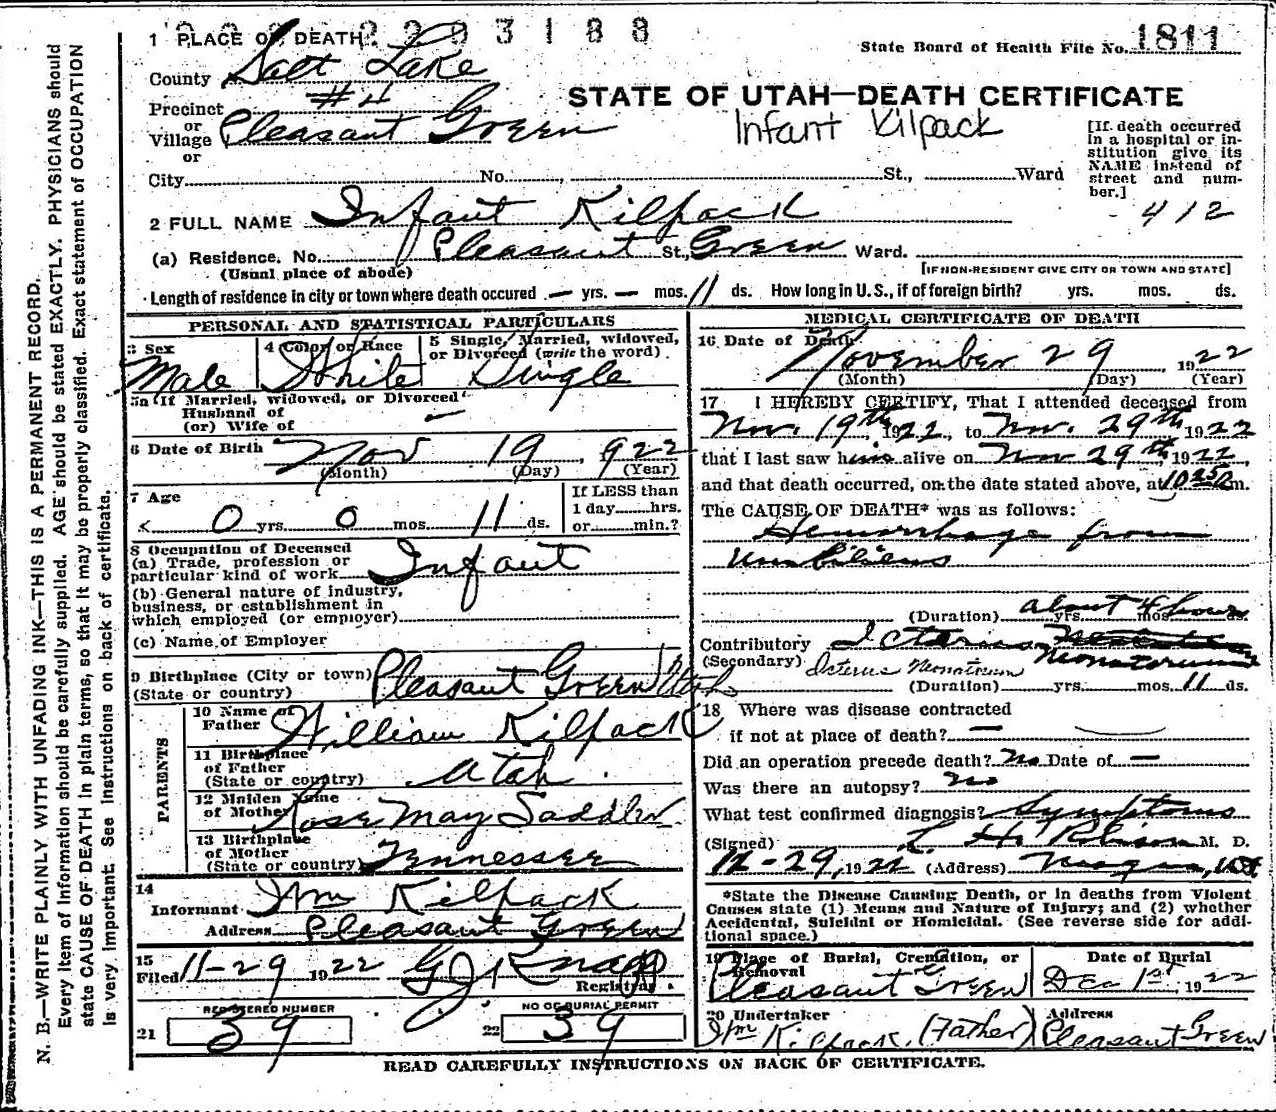 N. B.—WRITE PLAINLY WITH UNFADING INK—THIS IS A PERMANENT RECORD.
Every item of information should be carefully supplied. AGE should be stated EXACTLY. PHYSICIANS should
state CAUSE OF DEATH in plain terms, so that it may be properly classified. Exact statement of OCCUPATION
is very important. See instructions on back of certificate.
3188
1 PLACE OF DEATH
State Board of Health File No. 1811
County Salt Lake
Precinct #4
or
Village Pleasant Green
or
STATE OF UTAH—DEATH CERTIFICATE
Infant Kilpack
[If death occurred
in a hospital or in-
stitution give its
NAME instead of
street and num-
ber.]
City No. St., Ward
412
2 FULL NAME Infant Kilpack
(a) Residence. No. Pleasant St., Green Ward.
(Usual place of abode)
[IF NON-RESIDENT GIVE CITY OR TOWN AND STATE]
Length of residence in city or town where death occured — yrs. — mos. 11 ds. How long in U.S., if of foreign birth? yrs. mos. ds.
PERSONAL AND STATISTICAL PARTICULARS
3 Sex
Male
4 Color or Race
White
5 Single, Married, widowed,
or Divorced (write the word)
Single
5a If Married, widowed, or Divorced
Husband of
(or) Wife of —
6 Date of Birth Nov 19, 922
(Month) (Day) (Year)
7 Age
0 yrs. 0 mos. 11 ds.
If LESS than
1 day hrs.
or min.?
8 Occupation of Deceased
(a) Trade, profession or
particular kind of work Infant
(b) General nature of industry,
business, or establishment in
which employed (or employer)
(c) Name of Employer
9 Birthplace (City or town)
(State or country) Pleasant Green Utah
PARENTS
10 Name of
Father William Kilpack
11 Birthplace
of Father
(State or country) Utah
12 Maiden Name
of Mother Rose May Saddler
13 Birthplace
of Mother
(State or country) Tennessee
14
Informant Wm Kilpack
Address Pleasant Green
15
Filed 11-29 1922 G J Knapp
Registrar.
REGISTERED NUMBER
21 39
NO OF BURIAL PERMIT
22 39
MEDICAL CERTIFICATE OF DEATH
16 Date of Death
November 29, 1922
(Month) (Day) (Year)
17 I HEREBY CERTIFY, That I attended deceased from
Nov. 19th, 1922, to Nov. 29th 1922
that I last saw him alive on Nov 29th, 1922,
and that death occurred, on the date stated above, at m.
The CAUSE OF DEATH* was as follows:
Hemorrhage from
Umbilicus
(Duration) about 4 hours yrs. mos. ds.
Contributory Icterus Neonatorum
(Secondary) Icterus Neonatorum
(Duration) yrs. mos. 11 ds.
18 Where was disease contracted
if not at place of death? —
Did an operation precede death? No Date of —
Was there an autopsy? No
What test confirmed diagnosis? Symptoms
(Signed) L. H. Robison M. D.
-29, 1922 (Address) Magna, Ut
*State the Disease Causing Death, or in deaths from Violent
Causes state (1) Means and Nature of Injury; and (2) whether
Accidental, Suicidal or Homicidal. (See reverse side for addi-
tional space.)
19 Place of Burial, Cremation, or
Removal
Pleasant Green
Date of Burial
Dec 1st, 1922
20 Undertaker
Wm Kilpack (Father)
Address
Pleasant Green
READ CAREFULLY INSTRUCTIONS ON BACK OF CERTIFICATE.